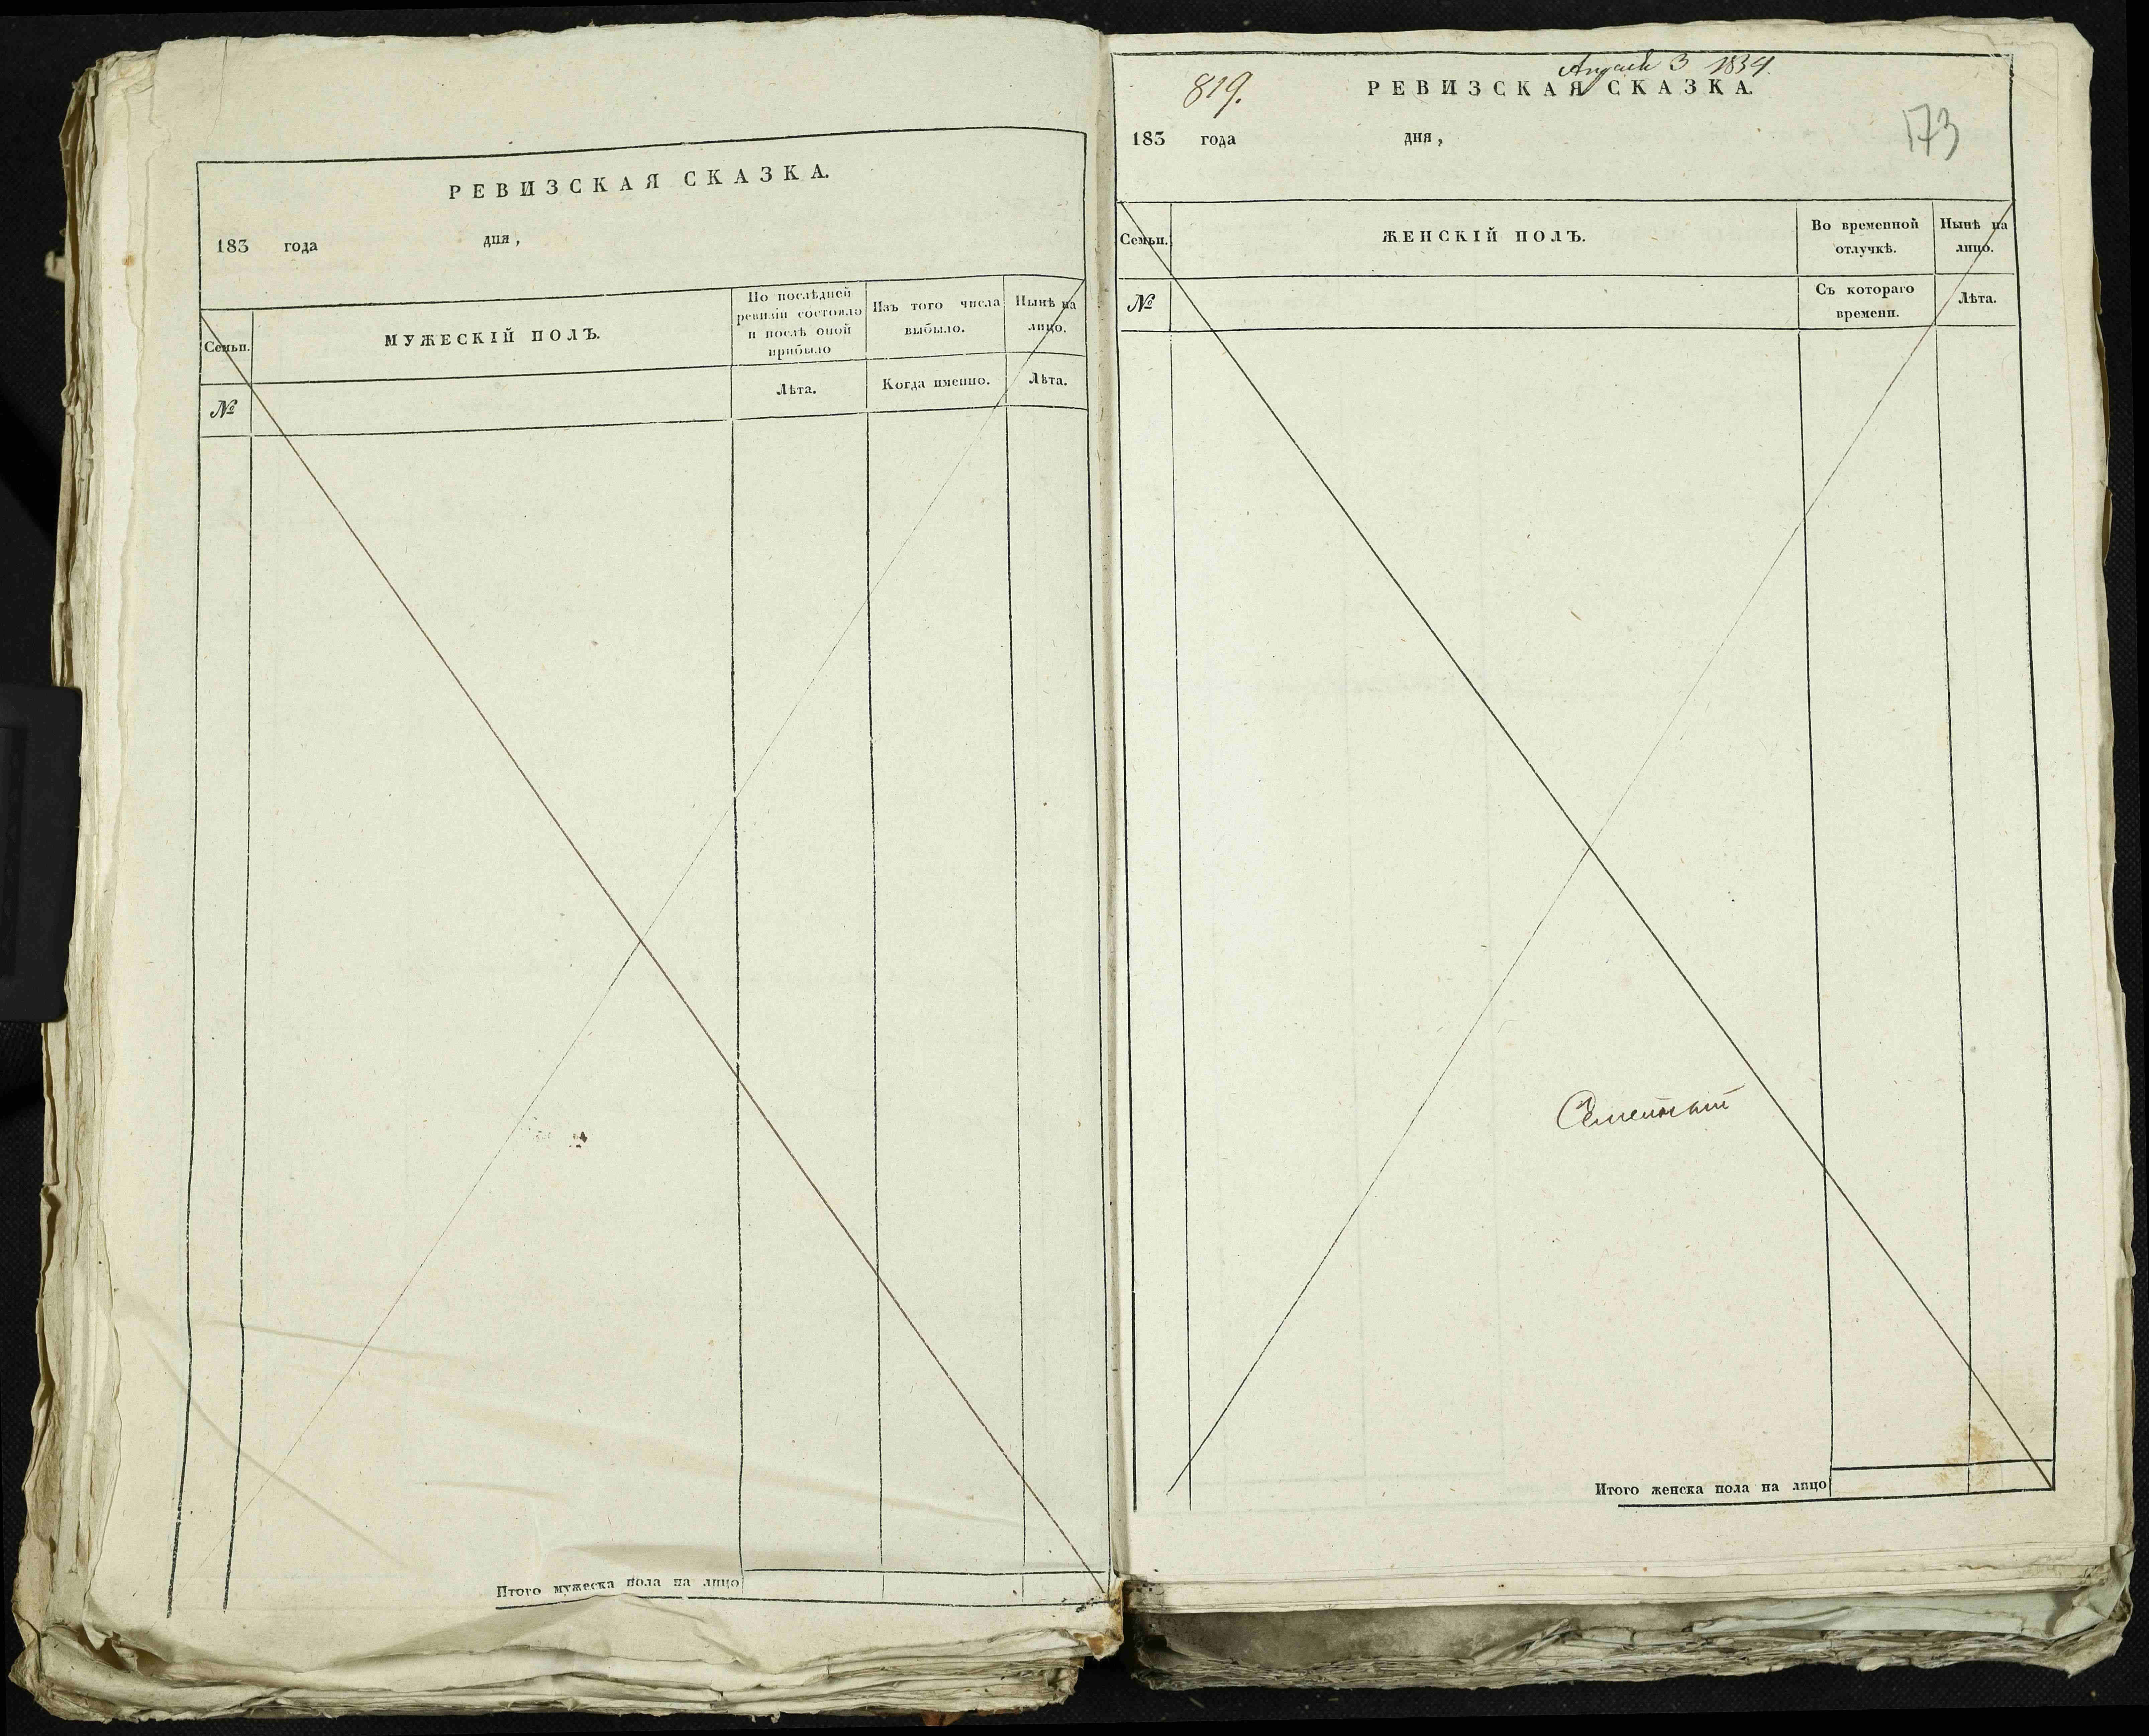 РЕВИЗСКАЯ СКАЗКА.
183 года дня,
Семьи.
МУЖЕСКІЙ ПОЛЪ.
По послѣдней
ревизіи состояло
и послѣ оной
прибыло
Изъ того числа
выбыло.
Нынѣ на
лицо.
№
Лѣта.
Когда именно.
Лѣта.
Итого мужеска пола на лицо
3 1834.
819.
РЕВИЗСКАЯ СКАЗКА.
173
183 года дня,
Семьи.
ЖЕНСКІЙ ПОЛЪ.
Во временной
отлучкѣ.
Нынѣ на
лицо.
№
Съ котораго
времени.
Лѣта.
Итого женска пола на лицо